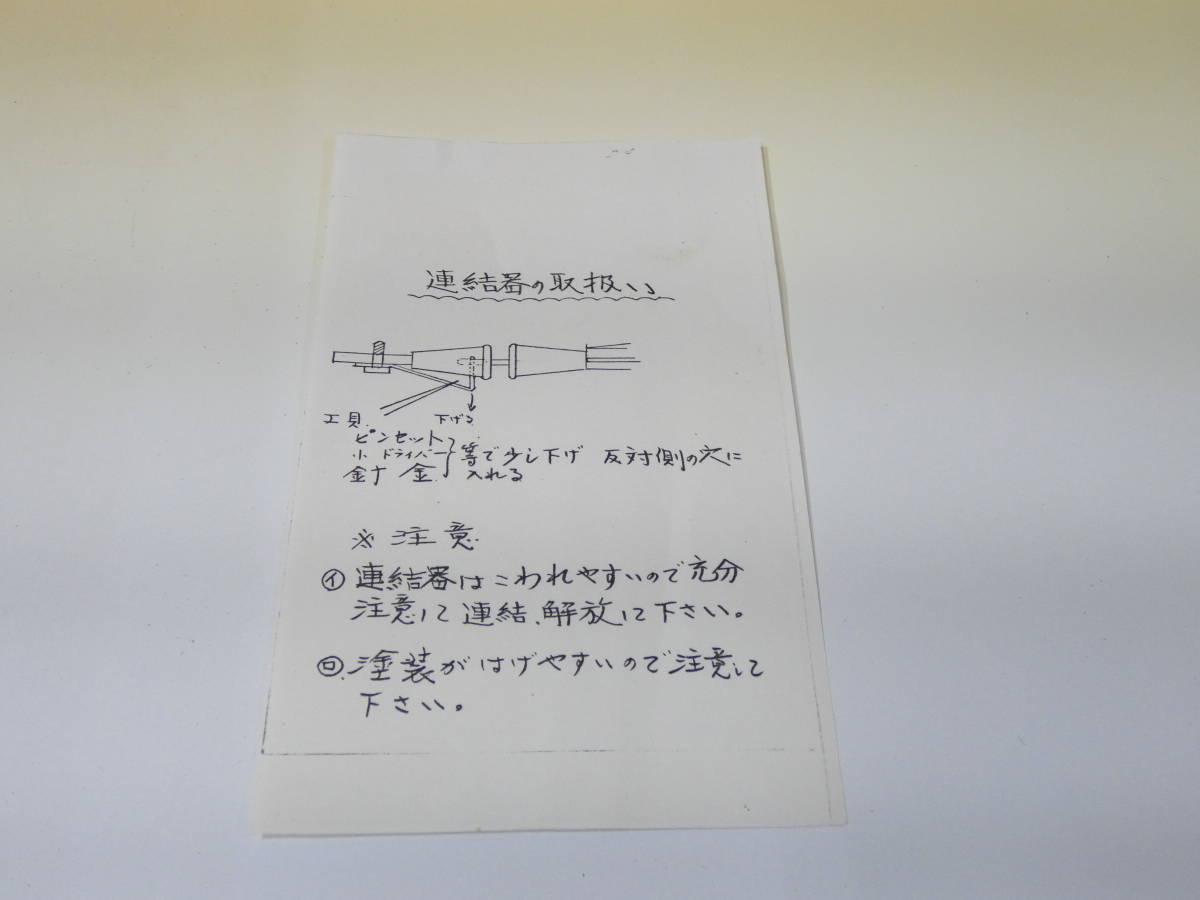 連結器の取扱い
工具.
下げる
ピンセット
小 ドライバー
針 金
等で少し下げ 反対側の穴に
入れる
※ 注意
㋑ 連結器はこわれやすいので充分
注意して 連結、解放して下さい。
㋺. 塗装がはげやすいので注意して
下さい。